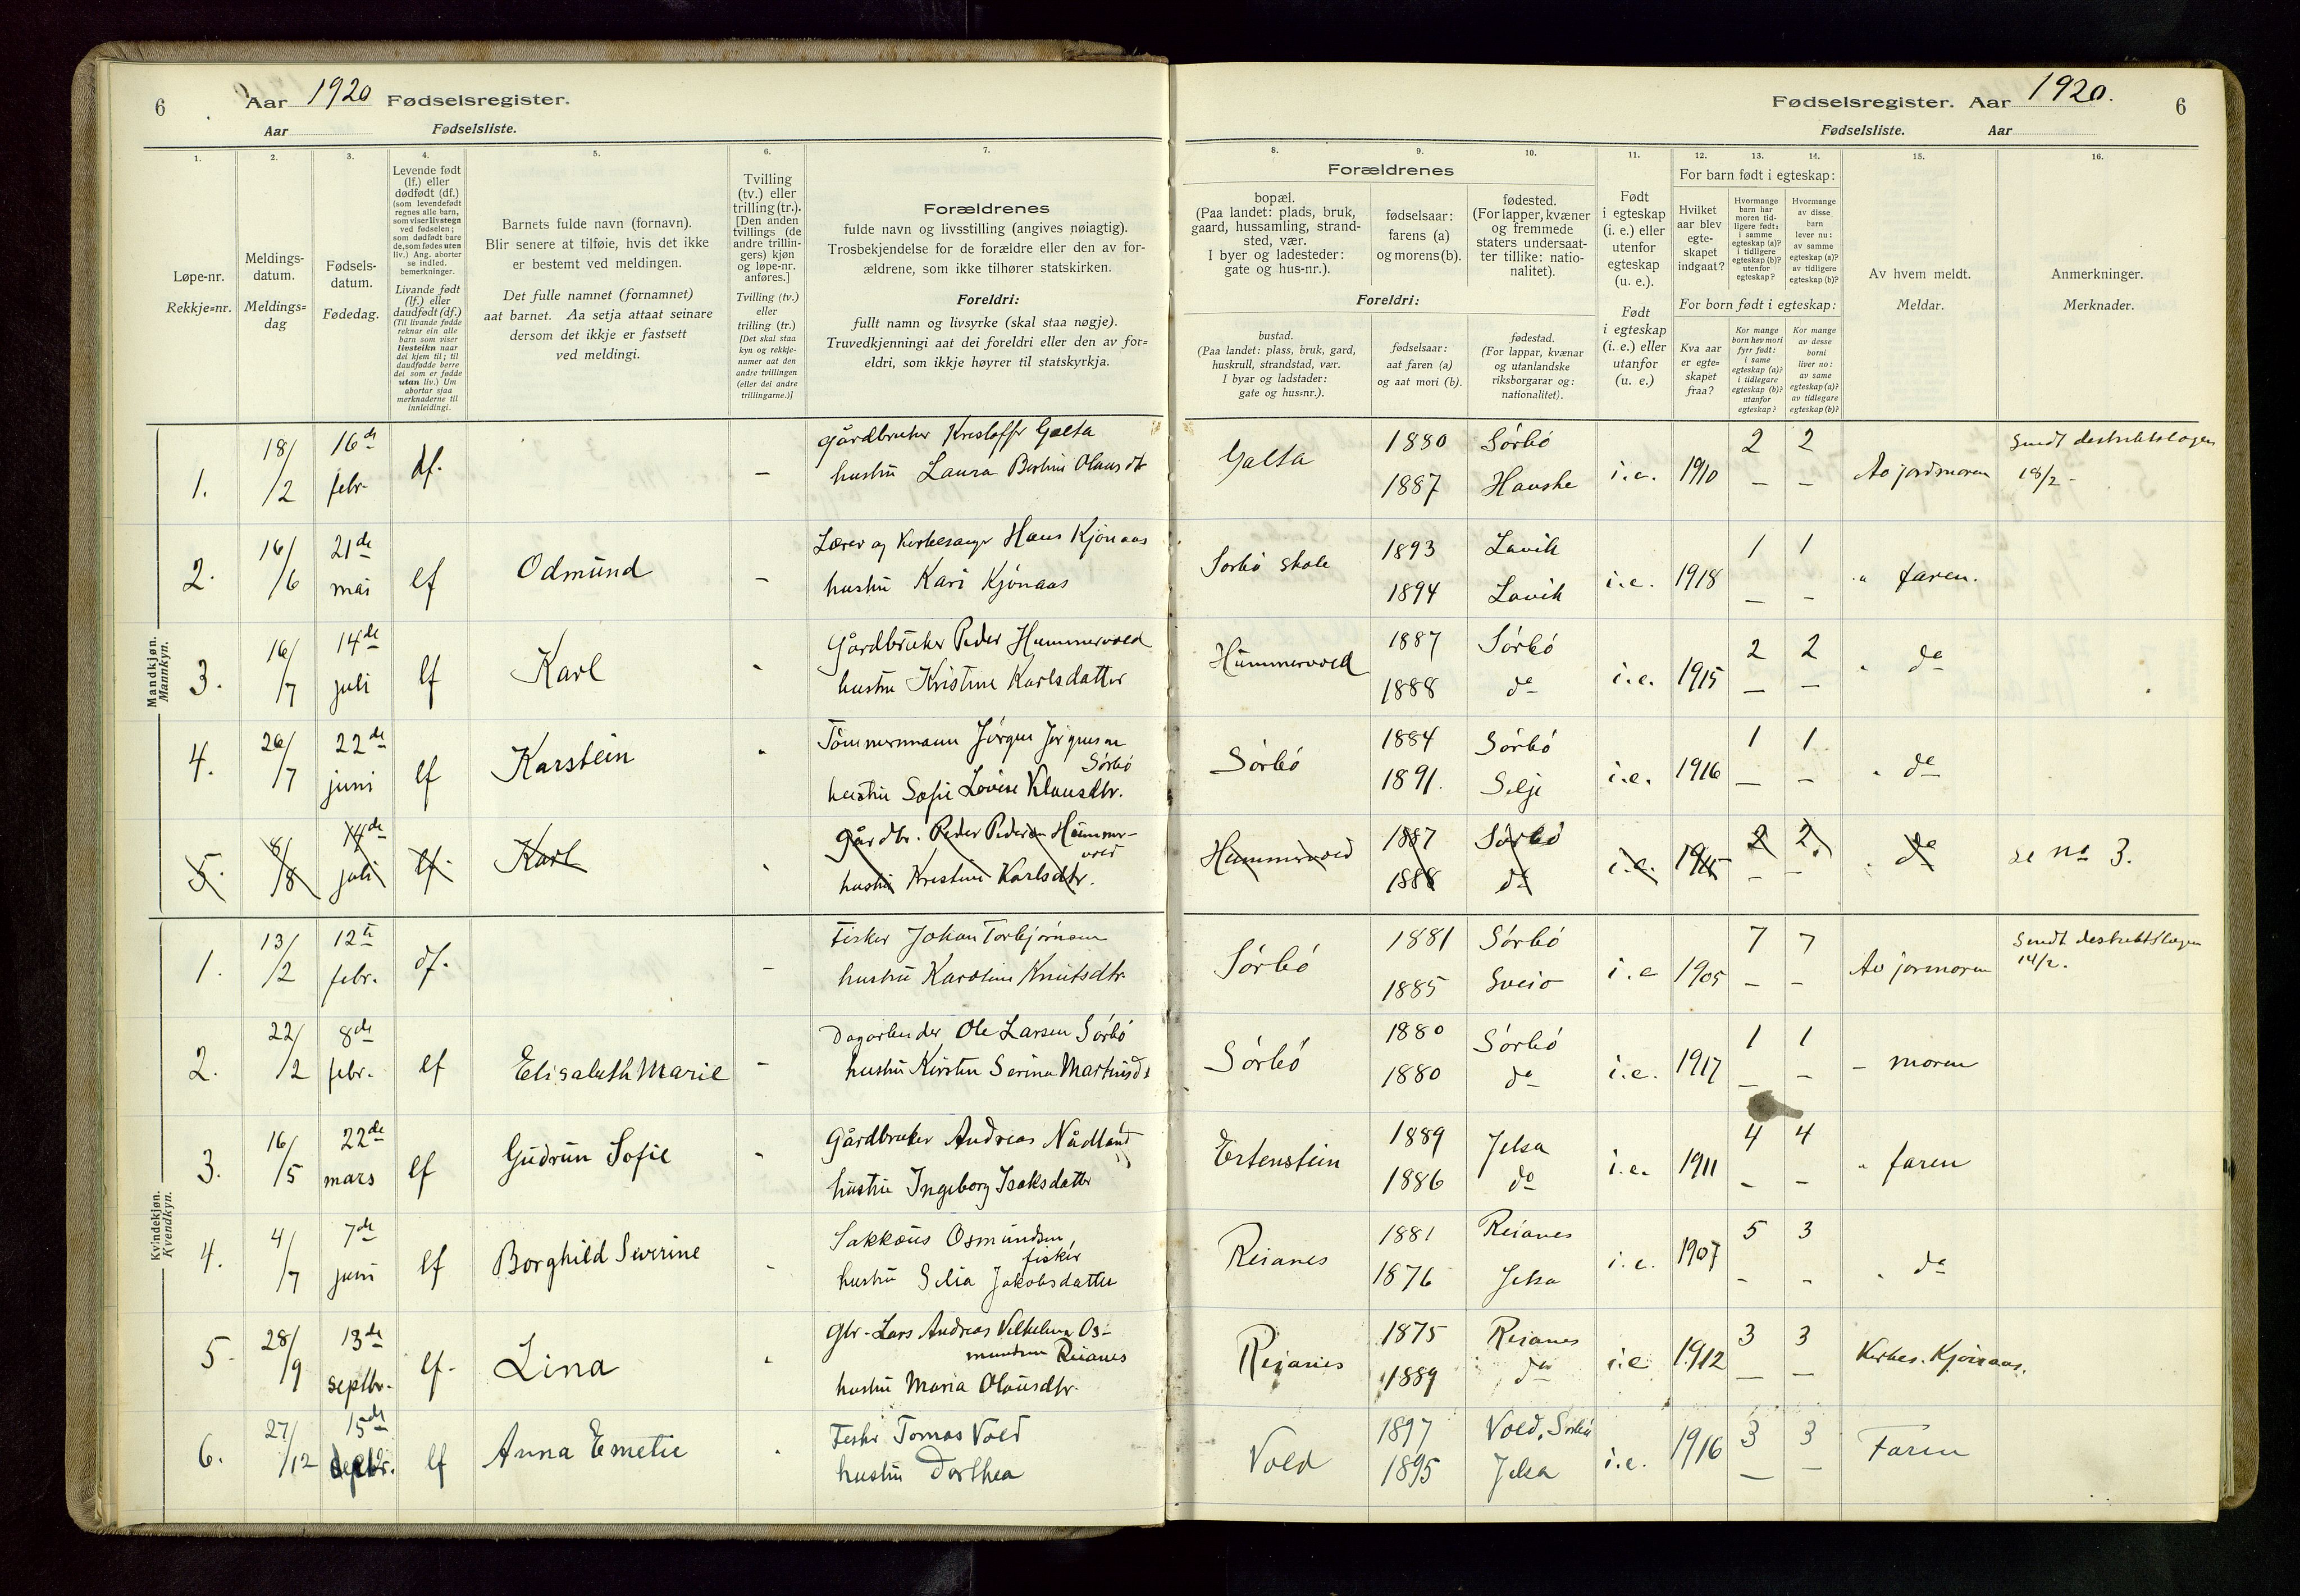 6
Aar 1920 Fødselsregister.
Aar Fødselsliste.
1.
2.
3.
4.
5.
6.
7.
Løpe-nr.
Rekkje=nr.
Meldings-
datum.
Meldings=
dag
Fødsels-
datum.
Fødedag.
Levende født
(lf.) eller
dødfødt (df.)
(som levendefødt
regnes alle barn,
som viser livstegn
ved fødselen;
som dødfødt bare
de, som fødes uten
liv.) Ang. aborter
se indled.
bemerkninger.
Livande født
(lf.) eller
daudfødt (df.)
(Til livande fødde
reknar ein alle
barn som viser
livsteikn naar
dei kjem til; til
daudfødde berre
dei som er fødde
utan liv.) Um
abortar sjaa
merknaderne til
innleidingi.
Barnets fulde navn (fornavn).
Blir senere at tilføie, hvis det ikke
er bestemt ved meldingen.
Det fulle namnet (fornamnet)
aat barnet. Aa setja attaat seinare
dersom det ikkje er fastsett
ved meldingi.
Tvilling
(tv.) eller
trilling (tr.).
[Den anden
tvillings (de
andre trillin-
gers) kjøn
og løpe-nr.
anføres.]
Tvilling (tv.)
eller
trilling (tr.)
[Det skal staa
kyn og rekkje-
numer aat den
andre tvillingen
(eller dei andre
trillingarne.)]
Forældrenes
fulde navn og livsstilling (angives nøiagtig).
Trosbekjendelse for de forældre eller den av for-
ældrene, som ikke tilhører statskirken.
Foreldri:
fullt namn og livsyrke (skal staa nøgje).
Truvedkjenningi aat dei foreldri eller den av for=
eldri, som ikkje høyrer til statskyrkja.
Mandkjøn.
Mannkyn.
1. 18/2 16de febr. df. – gårdbruker Kristoffer Galta
hustru Laura Bertine Olausdtr
2. 16/6 21de mai lf Odmund – Lærer og kirkesanger Hans Kjönaas
hustru Kari Kjönaas
3. 16/7 14de juli lf Karl - Gårdbruker Peder Hummervold
hustru Kristine Karlsdatter
4. 26/7 22de juni lf Karstein - Tömmermann Jörgen Jörgensen
Sörbö
hustru Sofie Lovise Klausdtr.
5. 8/8 14de juli lf. Karl - Gårdbr. Peder Pedersen Hummer-
vold
hustru Kristine Karlsdtr.
Kvindekjøn.
Kvendkyn.
1. 13/2 12te febr. df. – Fisker Johan Torbjörnsen
hustru Karoline Knutsdtr.
2. 22/2 8de febr. lf Elisabeth Marie – Dagarbeider Ole Larsen Sörbö
hustru Kirsten Serina Martinsd
3. 16/5 22de mars lf Gudrun Sofie - Gårdbruker Andreas Nådland
hustru Ingeborg Isaksdatter
4. 4/7 7de juni lf Borghild Severine - Sakkæus Osmundsen,
fisker
hustru Selia Jakobsdatter
5. 28/9 13de septbr. lf. Lina - Gbr. Lars Andreas Vilhelm Os-
mundsen Reianes
hustru Maria Olausdtr.
6. 27/12 15de lf Anna Emelie - Fisker Tomas Vold
hustru Dorthea
Fødselsregister. Aar 1920. 6
Fødselsliste. Aar
8.
9.
10.
11.
12.
13.
14.
15.
16.
Forældrenes
bopæl.
(Paa landet: plads, bruk,
gaard, hussamling, strand-
sted, vær.
I byer og ladesteder:
gate og hus-nr.).
fødselsaar:
farens (a)
og morens (b).
fødested.
(For lapper, kvæner
og fremmede
staters undersaat-
ter tillike: natio-
nalitet).
Foreldri:
bustad.
(Paa landet: plass, bruk, gard,
huskrull, strandstad, vær.
I byar og ladstader:
gate og hus=nr.).
fødselsaar:
aat faren (a)
og aat mori (b).
fødestad.
(For lappar, kvænar
og utanlandske
riksborgarar og:
nationalitet).
Født
i egteskap
(i. e.) eller
utenfor
egteskap
(u. e.).
Født
i egteskap
(i. e.) eller
utanfor
(u. e.)
For barn født i egteskap:
Hvilket
aar blev
egte-
skapet
indgaat?
Hvormange
barn har
moren tid-
ligere født:
i samme
egteskap (a)?
i tidligere
egteskap (b)?
utenfor
egteskap?
Hvormange
av disse
barn
lever nu:
av samme
egteskap (a)?
av tidligere
egteskap (b)?
For born født i egteskap:
Kva aar
er egte-
skapet
fraa?
Kor mange
born hev mori
fyrr født:
i same
egteskap (a)?
i tidlegare
egteskap (b)?
utanfor
egteskap?
Kor mange
av desse
borni
liver no:
av same
egteskap (a)?
av tidlegare
egteskap (b)?
Av hvem meldt.
Meldar.
Anmerkninger.
Merknader.
Galta 1880 Sörbö i.e. 1910 2 2 Av jordmoren Sendt destriktslægen
1887 Hauske – – 18/2 -
Sörbö skole 1893 Lavik i.e. 1918 1 1 " faren.
1894 Lavik – –
Hummervold 1887 Sörbö i.e. 1915 2 2 " do
1888 do – –
Sörbö 1884 Sörbö i.e. 1916 1 1 " do
1891. Selje – –
Hummervold 1887 Sörbö i.e. 1915 2 2. " do se no 3.
1888 do – –
Sörbö 1881 Sörbö i.e 1905 7 7 Av jormoren Sendt destriktslægen
1885 Sveio – – 14/2.
Sörbö 1880 Sörbö i.e. 1917 1 1 – moren
1880 do – –
Ertenstein 1889 Jelsa i.e. 1911 4 4 " faren
1886 do – –
Reianes 1881 Reianes i.e. 1907 5 3 " do
1876 Jelsa – –
Reianes 1875 Reianes i.e 1912 3 3 Kirkes. Kjönaas.
1889 do – –
Vold 1897 Vold, Sörbö i.e. 1916 3 3 Faren
1895 Jelsa – –